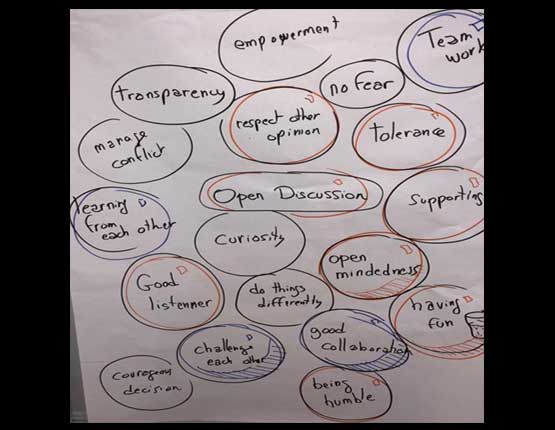 empowerment
Team
work
transparency
no fear
respect other
opinion
tolerance
manage
conflict
Open Discussion
supporting
learning
from
each other
curiosity
open
mindedness
Good
listenner
do things
differently
having
fun
good
collaboration
challenge
each other
courogeous
decision
being
humble